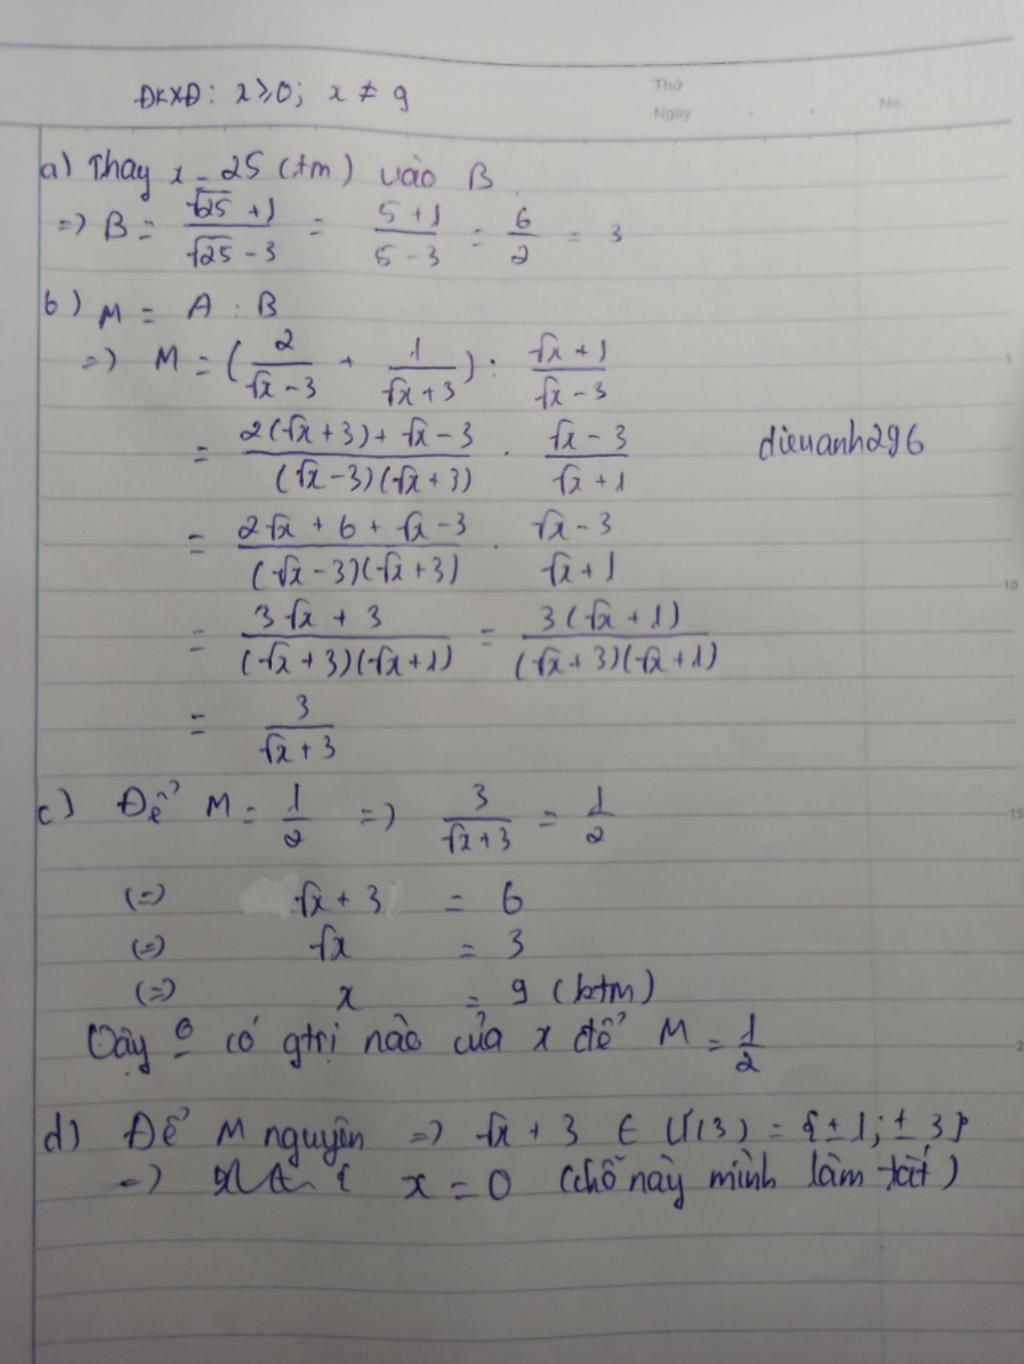 Thứ
Ngày
No.
ĐKXĐ: x ≥ 0; x ≠ 9
a) Thay x = 25 (tm) vào B
=> B = (√25 + 1)/(√25 - 3) = (5 + 1)/(5 - 3) = 6/2 = 3
b) M = A : B
=> M = (2/(√x - 3) + 1/(√x + 3)) : (√x + 1)/(√x - 3)
= (2(√x + 3) + √x - 3)/((√x - 3)(√x + 3)) . (√x - 3)/(√x + 1)
dieuanh296
= (2√x + 6 + √x - 3)/((√x - 3)(√x + 3)) . (√x - 3)/(√x + 1)
= (3√x + 3)/((√x + 3)(√x + 1)) = (3(√x + 1))/((√x + 3)(√x + 1))
= 3/(√x + 3)
c) Để M = 1/2 => 3/(√x + 3) = 1/2
(=) √x + 3 = 6
(=) √x = 3
(=>) x = 9 (ktm)
Vậy 0 có gtrị nào của x để M = 1/2
d) Để M nguyên => √x + 3 ∈ Ư(3) = {±1; ±3}
=> x = 0 (chỗ này mình làm tắt)
5
10
15
2